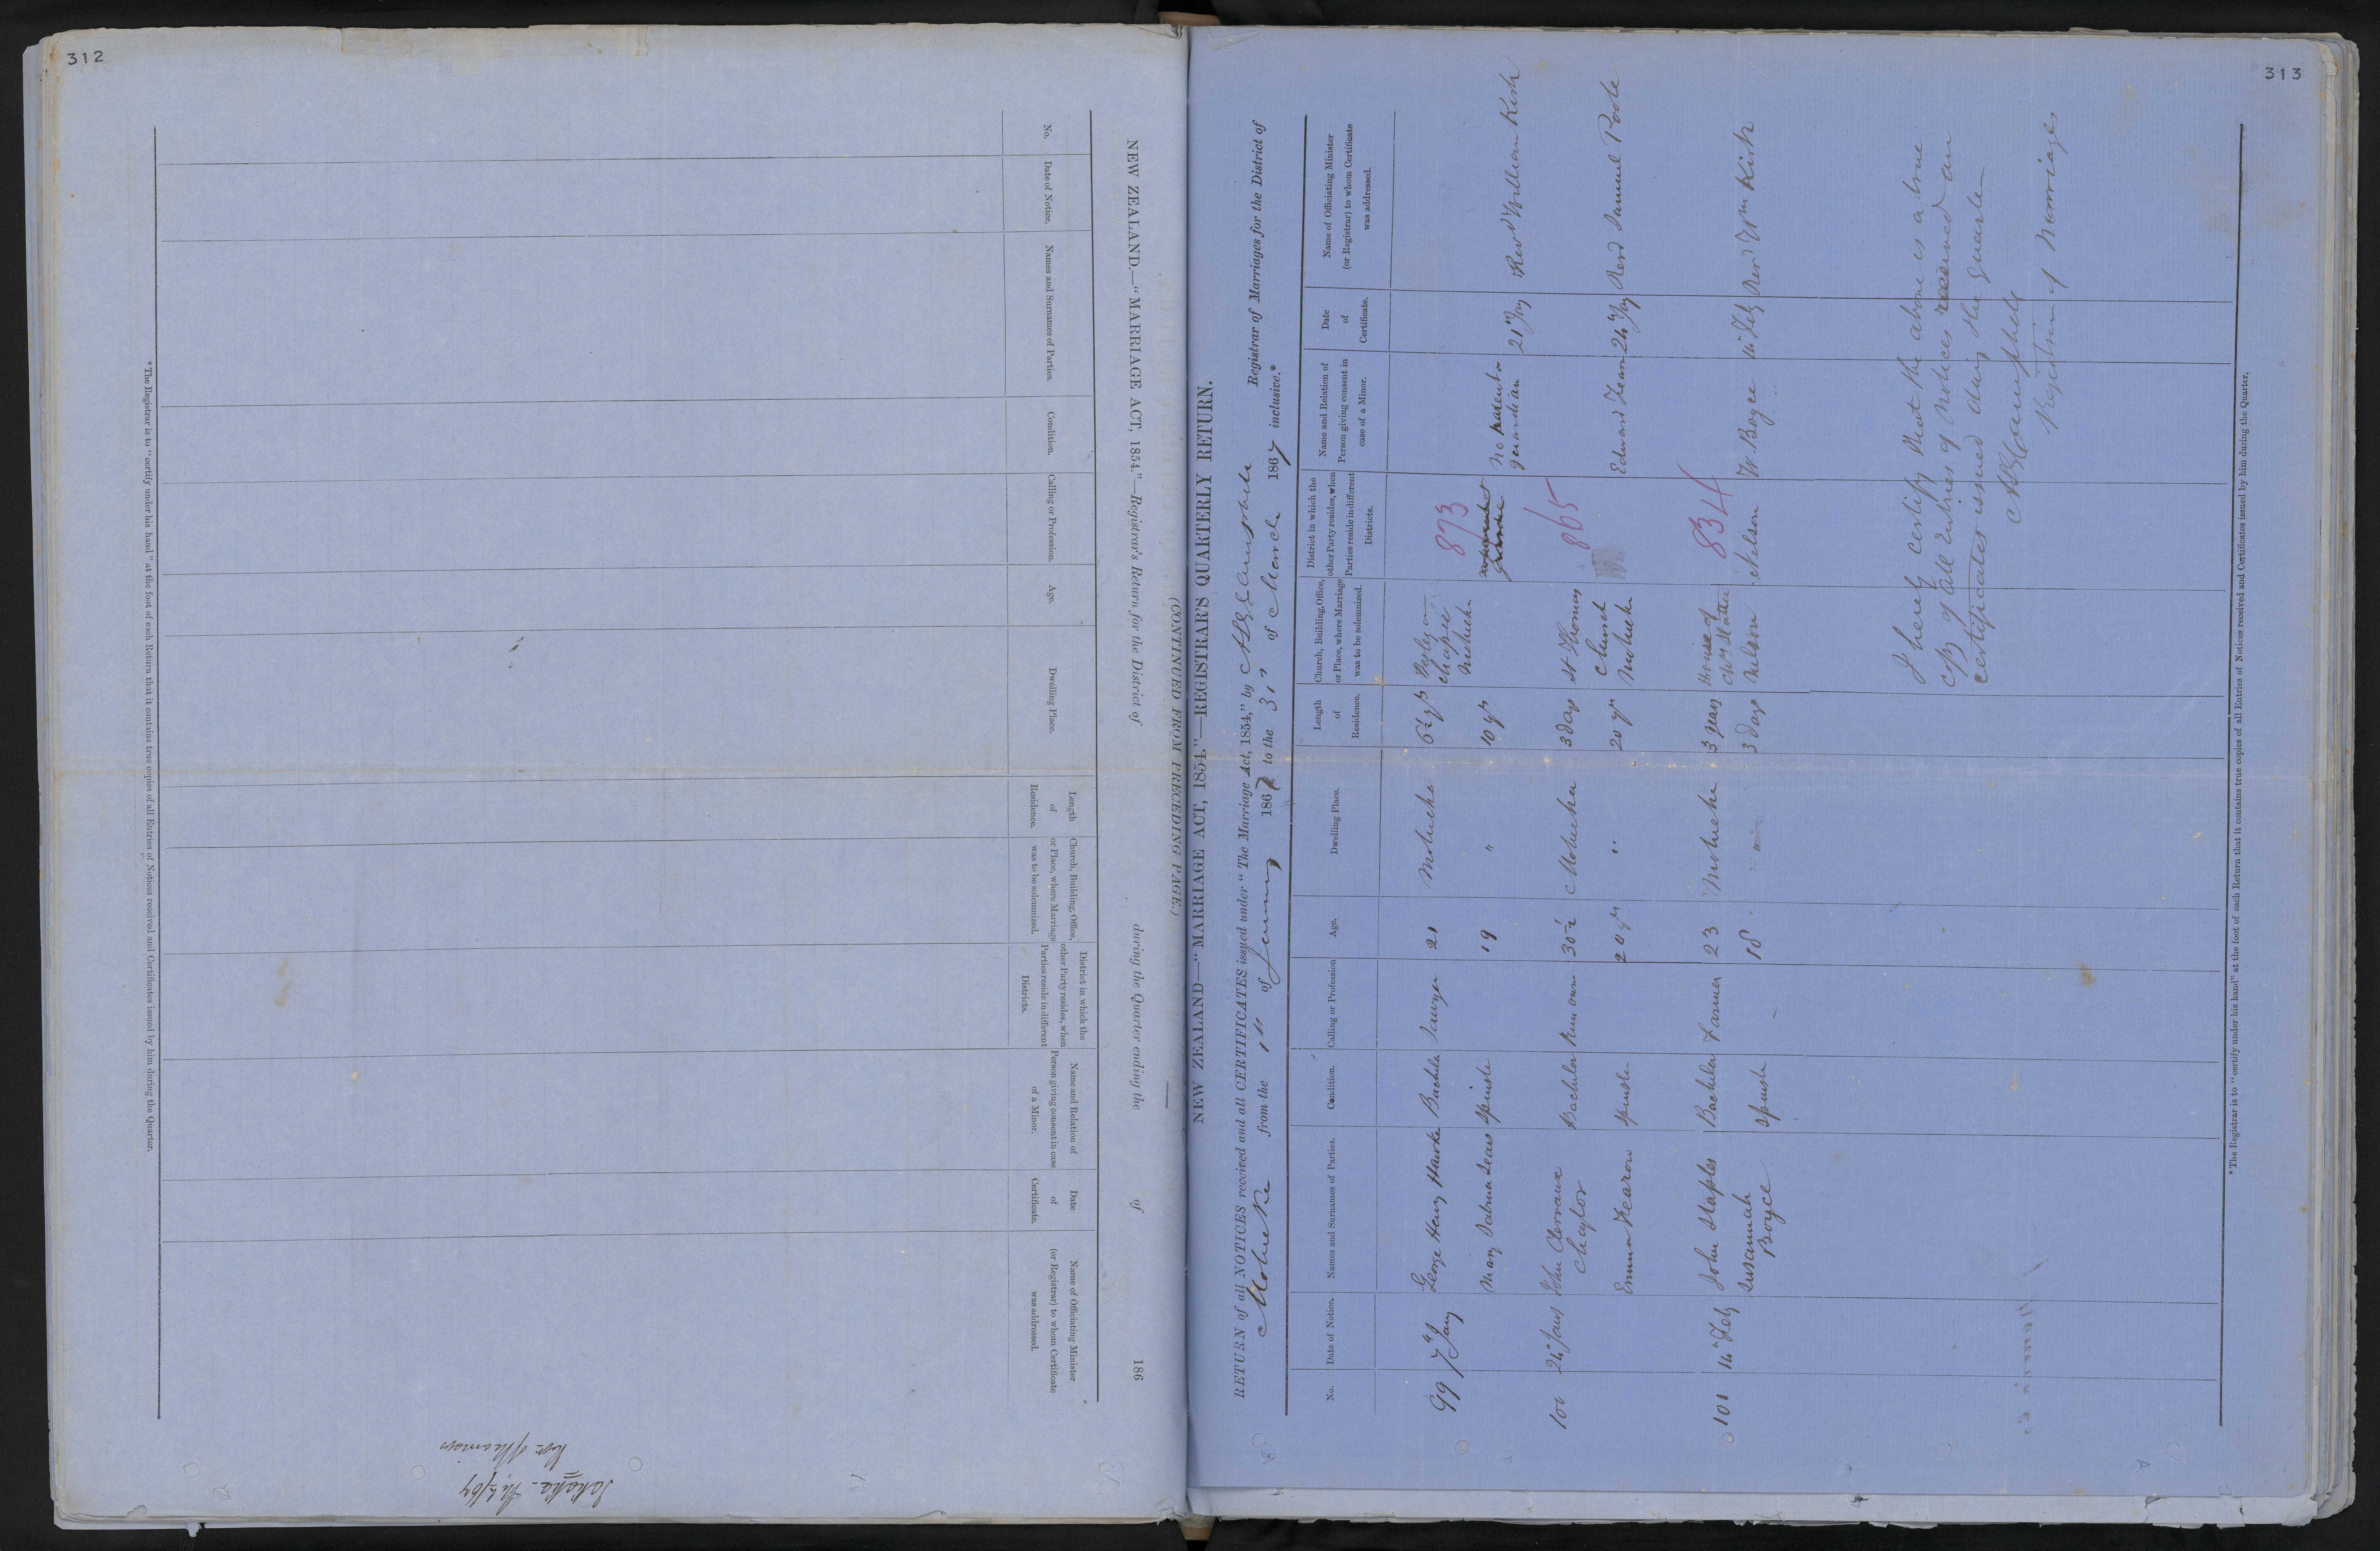 312
NEW ZEALAND.—"MARRIAGE ACT, 1854."—Registrar's Return for the District of during the Quarter ending the of 186
No.
Date of Notice.
Names and Surnames of Parties.
Condition.
Calling or Profession.
Age.
Dwelling Place.
Length
of
Residence.
Church, Building, Office,
or Place, where Marriage
was to be solemnized.
District in which the
other Party resides, when
Parties reside in different
Districts.
Name and Relation of
Person giving consent in case
of a Minor.
Date
of
Certificate.
Name of Officiating Minister
(or Registrar) to whom Certificate
was addressed.
* The Registrar is to "certify under his hand" at the foot of each Return that it contains true copies of all Entries of Notices received and Certificates issued by him during the Quarter.
313
(CONTINUED FROM PRECEDING PAGE.)
NEW ZEALAND—"MARRIAGE ACT, 1854."—REGISTRAR'S QUARTERLY RETURN.
RETURN of all NOTICES received and all CERTIFICATES issued under "The Marriage Act, 1854," by Campbell Registrar of Marriages for the District of
Motueka from the 1st of January 1867 to the 31st of March 1867 inclusive.*
No.
Date of Notice.
Names and Surnames of Parties.
Condition.
Calling or Profession
Age.
Dwelling Place.
Length
of
Residence.
Church, Building, Office,
or Place, where Marriage
was to be solemnized.
District in which the
other Party resides, when
Parties reside in different
Districts.
Name and Relation of
Person giving consent in
case of a Minor.
Date
of
Certificate.
Name of Officiating Minister
(or Registrar) to whom Certificate
was addressed.
99 7th Jany George Henry Hawke Bachelor Sawyer 21 Motueka 6½ yrs Wesleyan
chapel
Motueka
873
Mary Sabina Sears Spinster 19 " 10 yrs
No parent or
guardian
21st Jany Revd William Kirk
100 24 Jany John Clervaux
Chaytor
Bachelor Run owner 30½ Motueka 3 days St Thomas
Church
Motueka
865
Emma Fearon Spinster 20 yrs " 20 yrs Edward Fearon 24 Jany Revd Samuel Poole
101 14 Feby John Staples Bachelor Farmer 23 Motueka 3 years House of
Nelson
834
Susannah
Boyce
Spinster 18 " 3 days Nelson W. Boyce 14 Feby Revd Wm Kirk
I hereby certify that the above is a true
copy of all Entries of Notices received and
certificates issued during the Quarter
Campbell
Registrar of Marriages
* The Registrar is to "certify under his hand" at the foot of each Return that it contains true copies of all Entries of Notices received and Certificates issued by him during the Quarter.